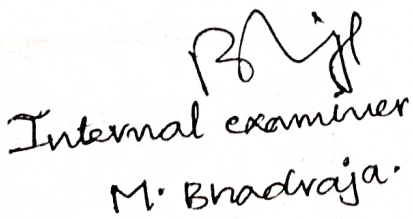 Internal examiner
M. Bhadraja.